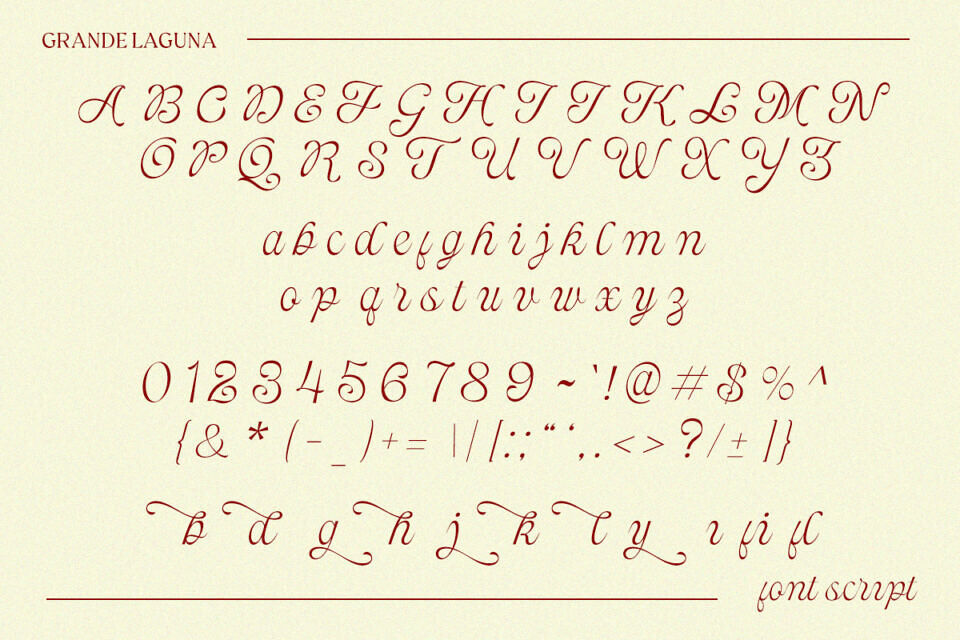 GRANDE LAGUNA
A B C D E F G H I J K L M N
O P Q R S T U V W X Y Z
a b c d e f g h i j k l m n
o p q r s t u v w x y z
0 1 2 3 4 5 6 7 8 9 ~ ` ! @ # $ % ^
{ & * ( - _ ) + = \ | [ : ; “ ‘ , . < > ? / ± ] }
b d g h j k l y ı fi fl
font script